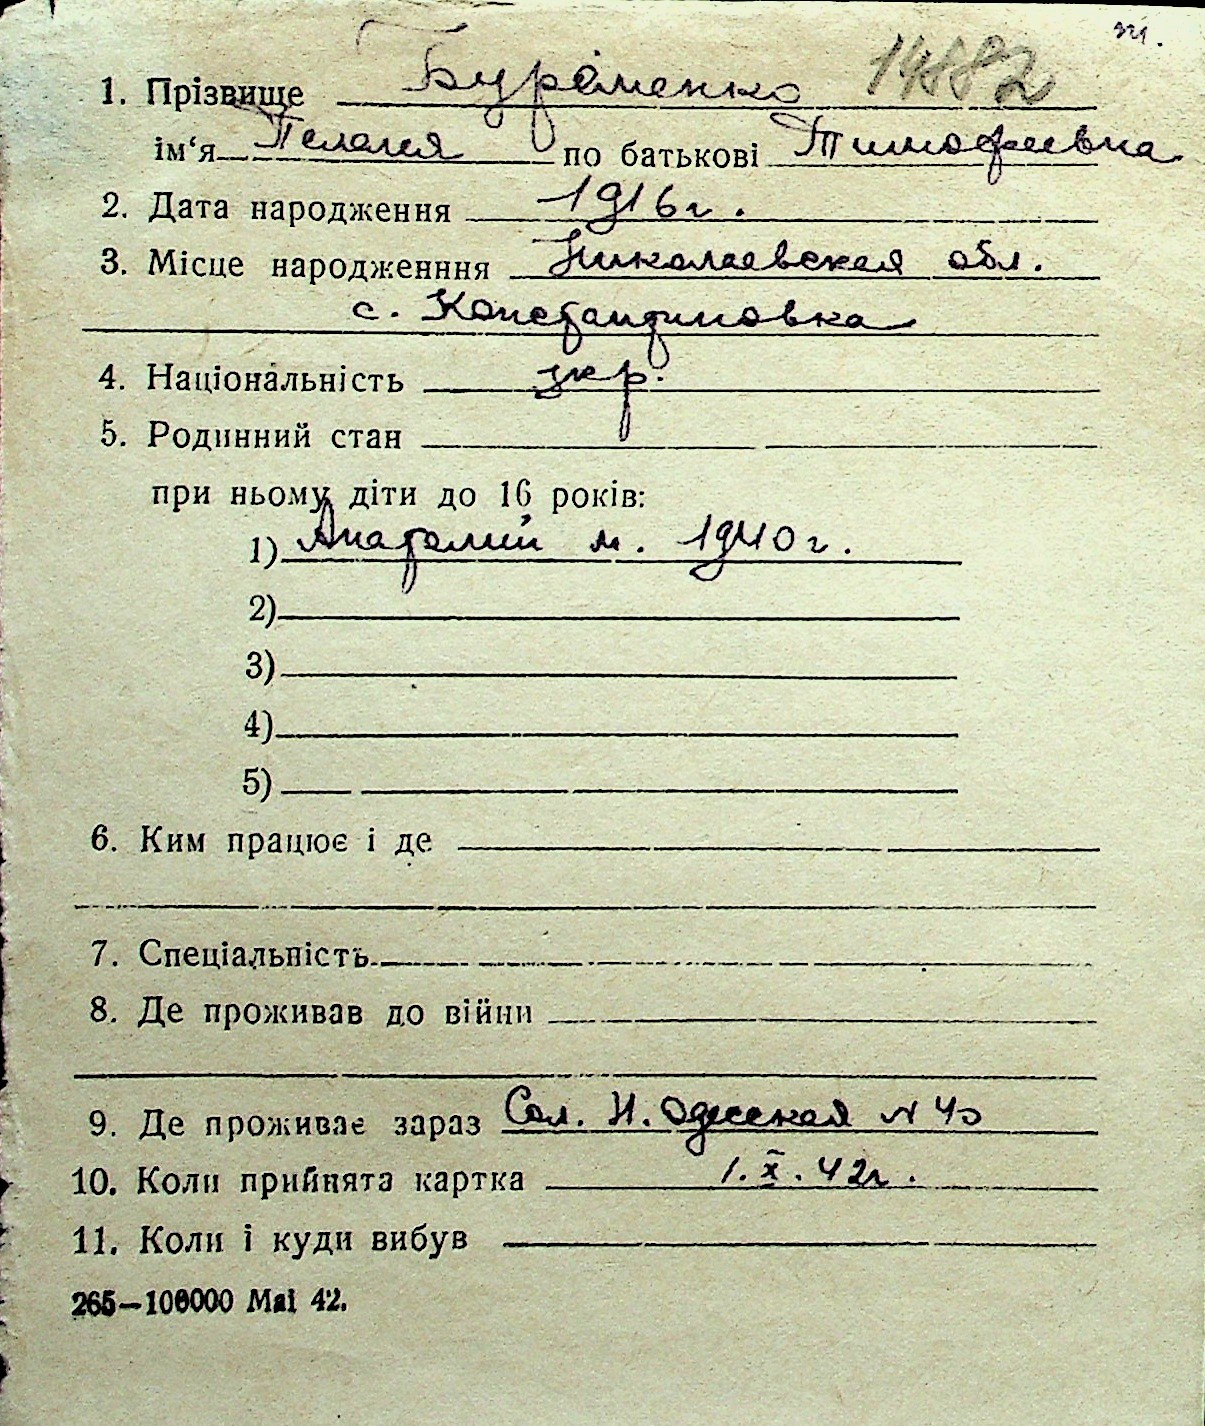 т.
1. Прізвище Бураменко 14882
ім‘я Пелагея по батькові Тимофеевна
2. Дата народження 1916г.
3. Місце народженння Николаевская обл.
с. Константиновка
4. Національність укр.
5. Родинний стан
при ньому діти до 16 років:
1) Анатолий м. 1940г.
2)
3)
4)
5)
6. Ким працює і де
7. Спеціальність
8. Де проживав до війни
9. Де проживає зараз Сол. Н. Одесская N 40
10. Коли прийнята картка 1.X.42г.
11. Коли і куди вибув
265—100000 Mai 42.